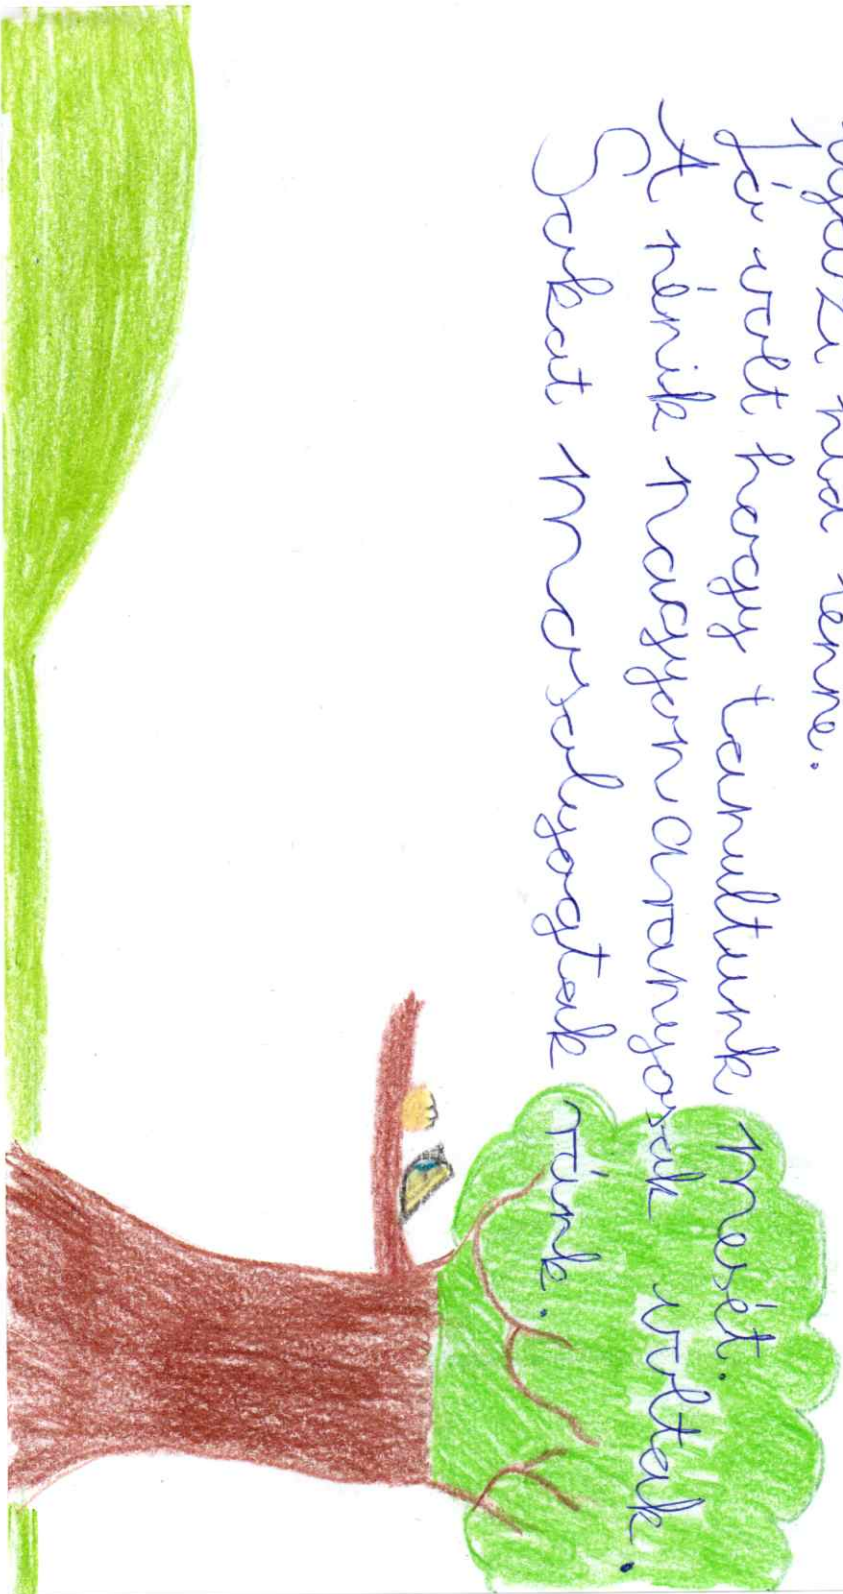 lenne.
Jó volt hogy tanultunk mesét.
A nénik nagyon aranyosak voltak.
Sokat mosolyogtak ránk.